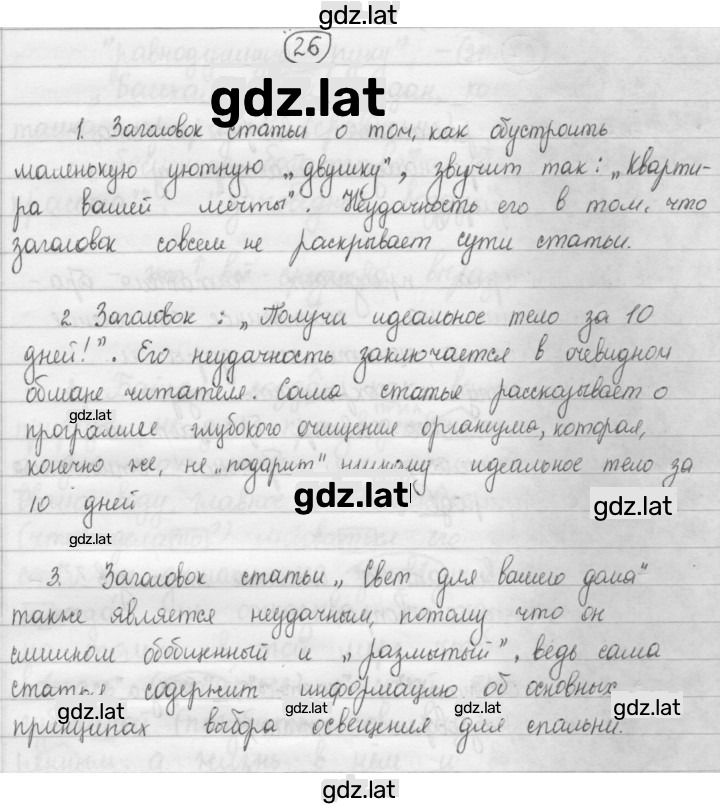 gdz.lat
26
gdz.lat
1. Заголовок статьи о том, как обустроить
маленькую уютную „двушку", звучит так: „Кварти-
ра вашей мечты". Неудачность его в том, что
заголовок совсем не раскрывает сути статьи.
2. Заголовок: „Получи идеальное тело за 10
дней!". Его неудачность заключается в очевидном
обмане читателя. Сама статья рассказывает о
gdz.lat
программе глубокого очищения организма, которая,
конечно же, не „подарит" никому идеальное тело за
10 дней
gdz.lat
gdz.lat
gdz.lat
3. Заголовок статьи „Свет для вашего дома"
также является неудачным, потому что он
слишком обобщенный и „размытый", ведь сама
статья содержит информацию об основных
gdz.lat
gdz.lat
gdz.lat
gdz.lat
принципах выбора освещения для спальни.
gdz.lat